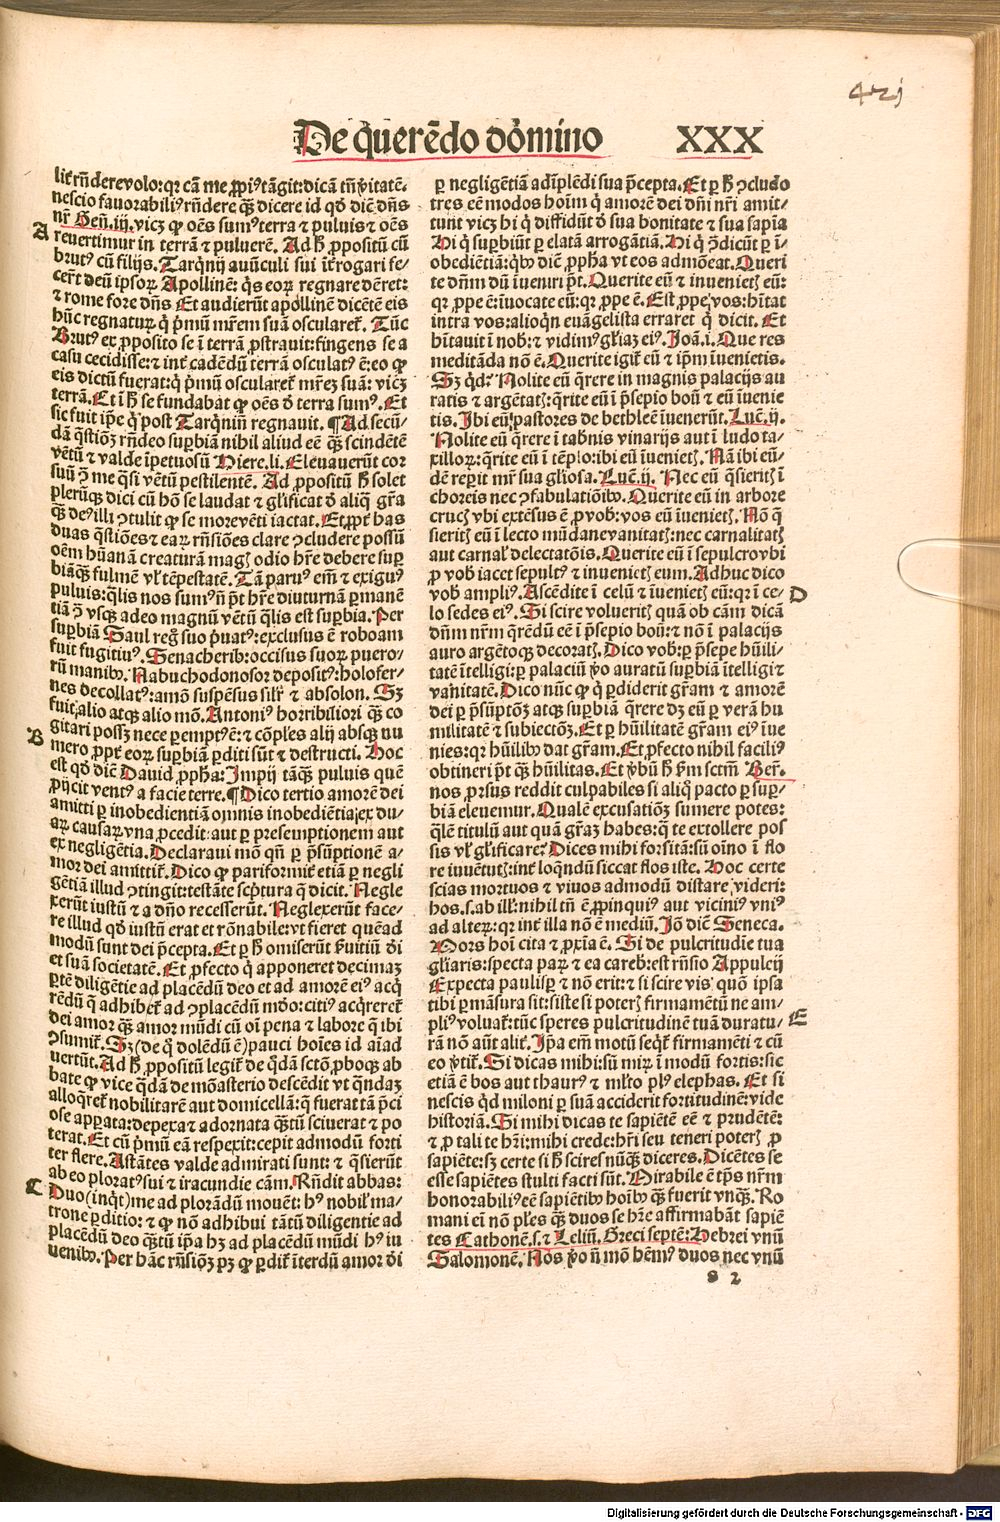 421
De q̄uerēdo dōmino XXX
lit̄ rñderevolo:qr cā me ꝓpiꝰ tāgit:dicā tñ v̄itatē.
nescio fauorabiliꝰ rñdere qꝫ̄ dicere id qd̄ diē dñs
nr̄ Beñ.iij.vicꝫ ꝙ oēs sumꝰ terra ⁊ puluis ⁊ oēs
A
reuertimur in terrā ⁊ puluerē. Ad h̄ ꝓpositū cū
brutꝰ cū filijs. Tarqnij auūculi sui it̄ rogari fe-
cer̄t deū ipsoꝝ Apollinē: q̄s eoꝝ regnare dēret:
⁊ rome fore dñs Et audierūt apollinē dicētē eis
hūc regnatuꝝ q̄ p̄mū mr̄em suā oscularet̄. Tūc
Brutꝰ ex ꝓposito se ī terrā ꝓstrauit:fingens se a
casu cecidisse:⁊ int̄ cadēdū terrā osculatꝰ ē:eo ꝙ
eis dictū fuerat:ꝙ p̄mū oscularet̄ mr̄eꝫ suā: vicꝫ
terrā. Et ī h̄ se fundabat ꝙ oēs d̄ terra sumꝰ. Et
sic fuit ip̄e q̄ post Tarqniū regnauit. ¶Ad secū-
dā q̄stiōꝫ rñdeo suꝑbiā nihil aliud eē qꝫ̄ scindētē
vētū ⁊ valde īpetuosū Hiere.li. Eleuauerūt cor
suū ꝯ me q̄si vētū pestilentē. Ad ꝓpositū h̄ solet
plerūqꝫ dici cū hō se laudat ⁊ gl̄ificat d̄ aliq̄ gr̄a
qꝫ̄ deꝰ illi ꝯtulit ꝙ se more vēti iactat. Et ꝓpt̄ has
duas q̄stiōes ⁊ eaꝝ rñsiōes clare ꝯcludere possū
oēm hūanā creaturā magꝭ odio hr̄e debere suꝑ
biāqꝫ fulmē vl̄ tēpestatē. Tā paruꝰ em̄ ⁊ exiguꝰ
puluis:q̄lis nos sumꝰ ñ pt̄ hr̄e diuturnā ꝑmanē
tiā ꝯ̄ vsqꝫ adeo magnū vētū q̄lis est suꝑbia. Per
suꝑbiā Saul reḡ suo p̄uatꝰ:exclusus ē roboam
fuit fugitiuꝰ. Senacherib:occisus suoꝝ puero-
rū manibꝰ. Nabuchodonosor depositꝰ:holofer-
nes decollatꝰ:amō suspēsus silr̄ ⁊ absolon. Sꝫ
fuit,alio atqꝫ alio mō. Antoniꝰ horribiliori qꝫ̄ co
B
gitari possꝫ nece ꝑemptꝰ ē:⁊ cōples alij absqꝫ nu
mero ꝓpt̄ eoꝝ suꝑbiā ꝑditi sūt ⁊ destructi. Hoc
est qd̄ diē Dauid ꝓpha:Impij tāqꝫ puluis quē
ꝓijcit ventꝰ a facie terre.¶Dico tertio amorē dei
amitti ꝑ inobedientiā omnis inobediētia,ex du-
aꝝ causaꝝ vna ꝓcedit:aut ꝑ presemptionem aut
ex negligētia. Declaraui mō qñ ꝑ p̄sūptionē a-
mor dei amittit̄. Dico ꝙ pariformit̄ etiā ꝑ negli
gētiā illud ꝯtingit:testāte sc̄ptura q̄ dicit. Negle
xerūt iustū ⁊ a dño recesserūt. Neglexerūt face-
re illud qd̄ iustū erat et rōnabile:vt fieret quēad
modū sunt dei p̄cepta. Et ꝑ h̄ omiserūt ẜuitiū dī
et suā societatē. Et ꝓfecto q̄ apponeret decimaꝫ
ꝑtē diligētie ad placēdū deo et ad amorē eiꝰ acq̄
rēdū q̄ adhibet̄ ad ꝯplacēdū mōo:citiꝰ acq̄reret̄
dei amor qꝫ̄ amor mūdi cū oī pena ⁊ labore q̄ ibi
ꝯsumit̄. Sꝫ (de q̄ dolēdū ē) pauci hoīes id aīad
vertūt. Ad h̄ ꝓpositū legit̄ de q̄dā sctō,ꝓboqꝫ ab
bate ꝙ vice q̄dā de mōasterio descēdit vt q̄ndaꝫ
alloq̄ret̄ nobilitarē aut domicellā:q̄ fuerat tā p̄ci
ose apꝑata:depexa ⁊ adornata qꝫ̄tū sciuerat ⁊ po
terat. Et cū p̄mū eā respexit:cepit admodū forti
ter flere. Astātes valde admirati sunt: ⁊ q̄sierūt
ab eo ploratꝰ sui ⁊ iracundie cām. Rñdit abbas:
C
Duo (inq̄t) me ad plorādū mouēt: hꝰ nobilꝭ ma-
trone ꝑditio: ⁊ ꝙ nō adhibui tātū diligentie ad
placēdū deo qꝫ̄tū ip̄a hꝫ ad placēdū mūdi hꝰ iu
uenibꝰ. Per hāc rñsiōꝫ pꝫ ꝙ ꝑdit̄ īterdū amor dī
ꝑ negligētiā adīplēdi sua p̄cepta. Et ꝑ h̄ ꝯcludo
tres eē modos hoīm q̄ amorē dei dñi nr̄i amit-
tunt vicꝫ hi q̄ diffidūt d̄ sua bonitate ⁊ sua sapīa
Hi q̄ suꝑbiūt ꝑ elatā arrogātiā. Hi q̄ ꝯ̄dicūt ꝑ ī-
obediētiā:q̄bꝰ diē ꝓpha vt eos admōeat. Queri
te dñm dū īueniri pt̄. Querite eū ⁊ inuenietꝭ eū:
qr ꝓpe ē:īuocate eū:qr ꝓpe ē. Est ꝓpe,vos:hītat
intra vos:alioqn euāgelista erraret q̄ dicit. Et
hītauit ī nob̄:⁊ vidimꝰ gl̄iaꝫ eiꝰ. Joā.i. Que res
meditāda nō ē. Querite igit̄ eū ⁊ ip̄m īuenietis.
Sꝫ qd̄? Nolite eū q̄rere in magnis palacijs au
ratis ⁊ argētatꝭ:q̄rite eū ī p̄sepio boū ⁊ eū īuenie
tis. Ibi eū pastores de bethleē īuenerūt. Luc̄.ij.
Nolite eū q̄rere ī tab̄nis vinarijs aut ī ludo ta-
xilloꝝ:q̄rite eū ī tēplo:ibi eū īuenietꝭ. Nā ibi eū-
dē reꝑit mr̄ sua gliosa. Luc̄.ij. Nec eū q̄sieritꝭ ī
choreis nec ꝯfabulatiōibꝰ. Querite eū in arbore
crucꝭ vbi extēsus ē ꝓ vob̄:vos eū īuenietꝭ. Nō q̄
sieritꝭ eū ī lecto mūdane vanitatꝭ:nec carnalitatꝭ
aut carnalꝭ delectatōis. Querite eū ī sepulcro vbi
ꝓ vob̄ iacet sepultꝰ ⁊ inuenietꝭ eum. Adhuc dico
vob̄ ampliꝰ. Ascēdite ī celū ⁊ īuenietꝭ eū:qr ī ce-
D
lo sedes eiꝰ. Si scire volueritꝭ quā ob cām dicā
dñm nr̄m q̄rēdū eē ī p̄sepio boū:⁊ nō ī palacijs
auro argētoqꝫ decoratꝭ. Dico vob̄:ꝑ p̄sepe hūili-
tatē ītelligi:ꝑ palaciū v̄o auratū suꝑbiā ītelligi ⁊
vanitatē. Dico nūc ꝙ q̄ ꝑdiderit gr̄am ⁊ amorē
dei ꝑ p̄sūptōꝫ atqꝫ suꝑbiā q̄rere dꝫ eū ꝑ verā hu
militatē ⁊ subiectōꝫ. Et ꝑ hūilitatē gr̄am eiꝰ īue
nies:qr hūilibꝰ dat gr̄am. Et ꝓfecto nihil faciliꝰ
obtineri pt̄ qꝫ̄ hūilitas. Et v̄bū h̄ ẜm sctm̄ Ber̄.
nos ꝓrsus reddit culpabiles si aliq̄ pacto ꝑ suꝑ-
biā eleuemur. Qualē excusatiōꝫ sumere potes:
q̄lē titulū aut quā gr̄aꝫ habes:q̄ te extollere pos
sis vl̄ gl̄ificare? Dices mihi forsitā:sū oīno ī flo
re iuuētutꝭ:int̄ loq̄ndū siccat flos iste. Hoc certe
scias mortuos ⁊ viuos admodū distare videri:
hos.s.ab illꝭ:nihil tñ ē ꝓpinquiꝰ aut viciniꝰ vniꝰ
ad alteꝝ: qr int̄ illa nō ē mediū. Jō diē Seneca.
Mors hoī cita ⁊ ꝓxīa ē. Si de pulcritudīe tua
gl̄iaris:specta paꝝ ⁊ ea carebꝭ:est rñsio Appuleij
Expecta paulisꝑ ⁊ nō erit:⁊ si scire vis quō ipsa
tibi ꝑmāsura sit:siste si poterꝭ firmamētū ne am-
pliꝰ voluat̄:tūc speres pulcritudinē tuā duratu-
E
rā nō aūt alit̄. Ip̄a em̄ motū seq̄t̄ firmamēti ⁊ cū
eo v̄tit̄. Si dicas mihi:sū miꝝ ī modū fortis:sic
etiā ē bos aut thaurꝰ ⁊ ml̄to plꝰ elephas. Et si
nescis qd̄ miloni ꝑ suā acciderit fortitudinē:vide
historiā. Si mihi dicas te sapiētē eē ⁊ prudētē:
⁊ ꝓ tali te hr̄i:mihi crede:hr̄i seu teneri poterꝭ ꝓ
sapiēte:sꝫ certe si h̄ scires nūqꝫ̄ diceres. Dicētes se
esse sapiētes stulti facti sūt. Mirabile ē tp̄s nr̄m
honorabiliꝰ eē sapiētibꝰ hoībꝰ qꝫ̄ fuerit vnqꝫ̄. Ro
mani ei nō pl̄es qꝫ̄ duos se hr̄e affirmabāt sapiē
tes Cathonē.s.⁊ Leliū. Greci septē:Hebrei vnū
Salomonē. Nos v̄o ñ mō hēmꝰ duos nec vnū
s 2
Digitalisierung gefördert durch die Deutsche Forschungsgemeinschaft - DFG